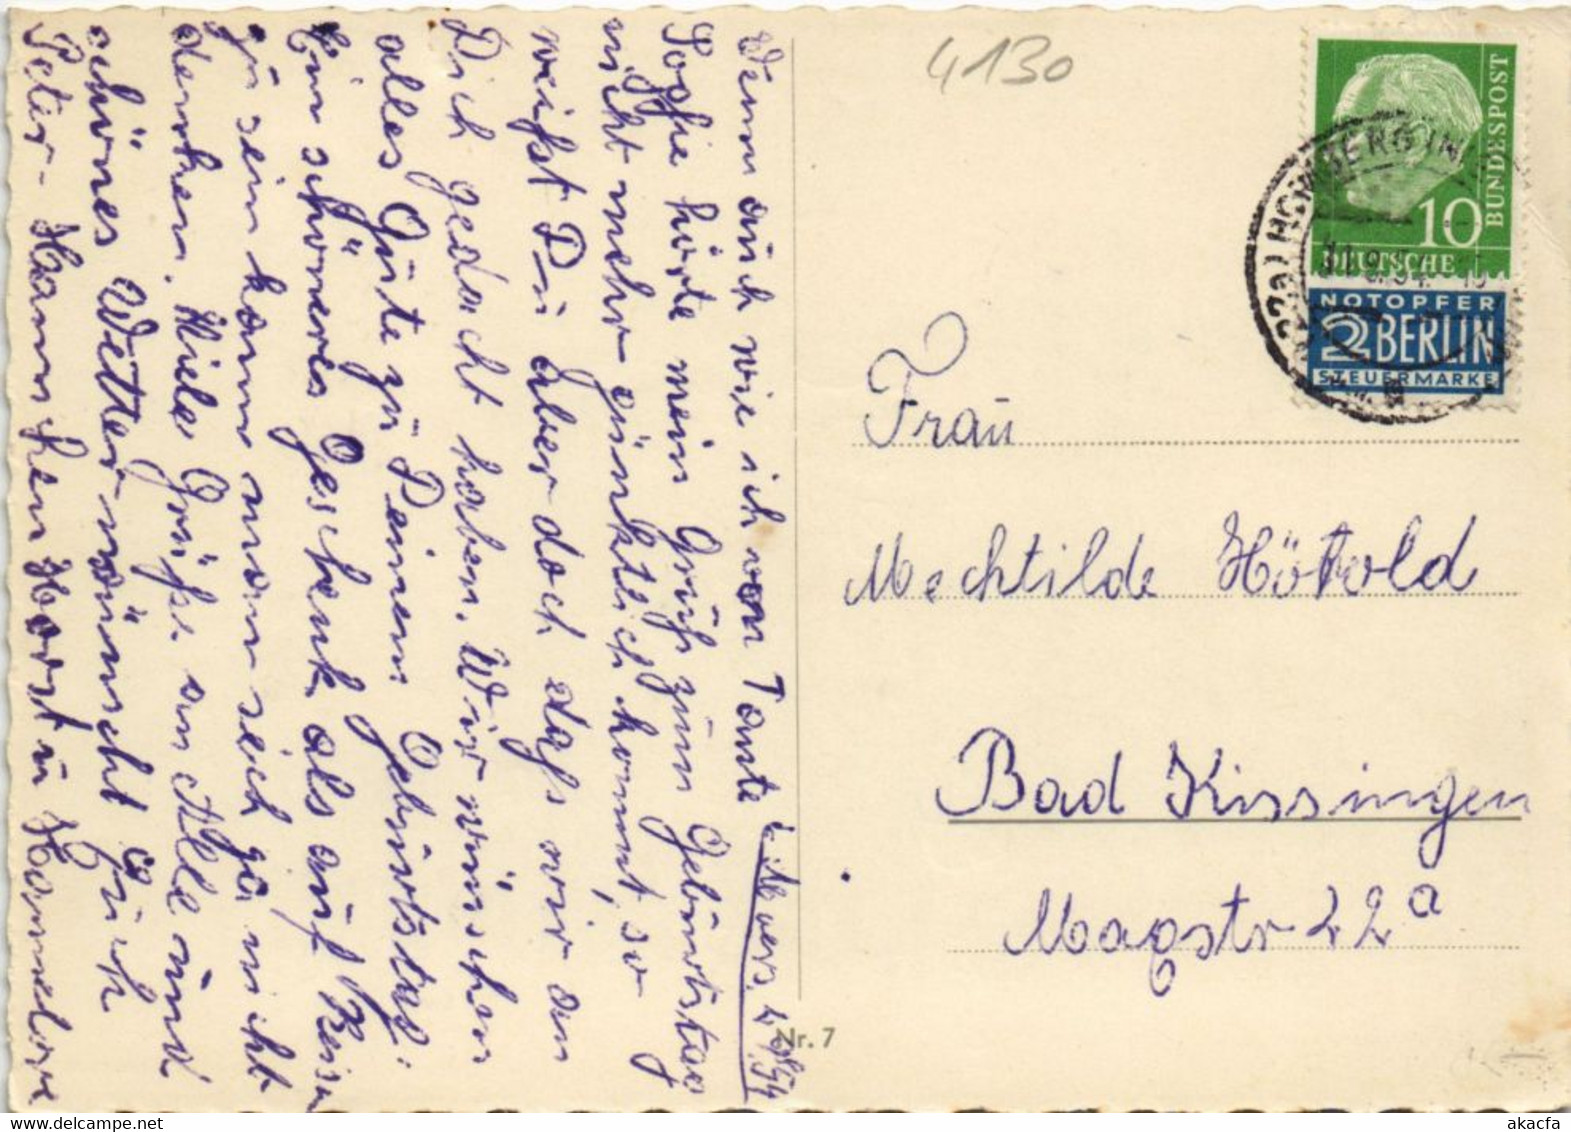 Moers, 4.9.54
Wenn auch wie ich von Tante
Sofie hörte mein Gruß zum Geburtstag
nicht mehr pünktlich kommt, so
weißt Du aber doch daß wir an
Dich gedacht haben. Wir wünschen
alles Gute zu Deinem Geburtstag.
Ein schöneres Geschenk als auf Reisen
zu sein kann man sich ja nicht
denken. Viele Grüße an Alle und
schönes Wetter wünscht Euch
Peter-Hannchen Horst u Hannelore
4130
BUNDESPOST
10
DEUTSCHE
NOTOPFER
2 BERLIN
STEUERMARKE
(22a) HOMBERG
Frau
Mechtilde
Bad Kissingen
22a
Nr. 7
akacfa